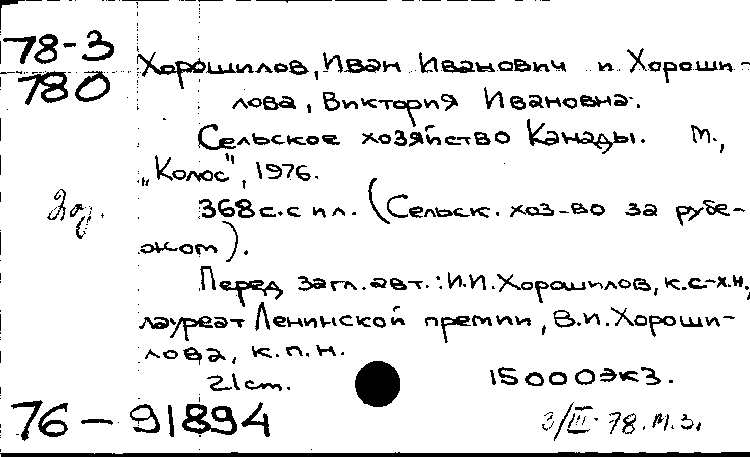 78-3
780
Хорошилов, Иван Иванович и Хороши-
лова, Виктория Ивановна.
Сельское хозяйство Канады. М.,
„Колос", 1976.
368 с. с ил. (Сельск. хоз-во за рубе-
жом).
Перед загл. авт.: И.И. Хорошилов, к.с-х.н,
лауреат Ленинской премии, В.И. Хороши-
лова, к.п.н.
21 cm. 15000 экз.
76-91894
3/III-78. М.З.